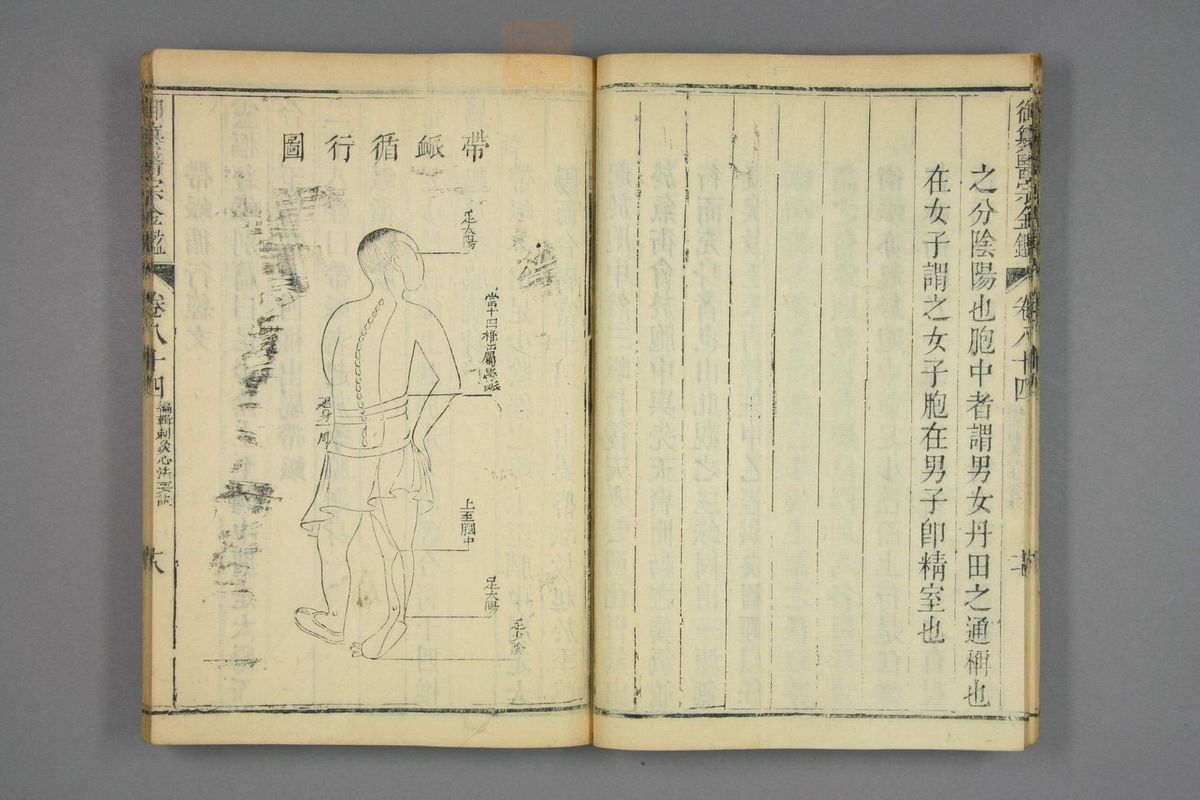 御纂醫宗金鑑 卷八十四
之分陰陽也胞中者謂男女丹田之通稱也
在女子謂之女子胞在男子卽精室也
帶脈循行圖
足太陽
當十四椎出屬帶脈
廻身一周
上至膕中
足太陽
足少陰
御纂醫宗金鑑 卷八十四 編輯刺灸心法要訣